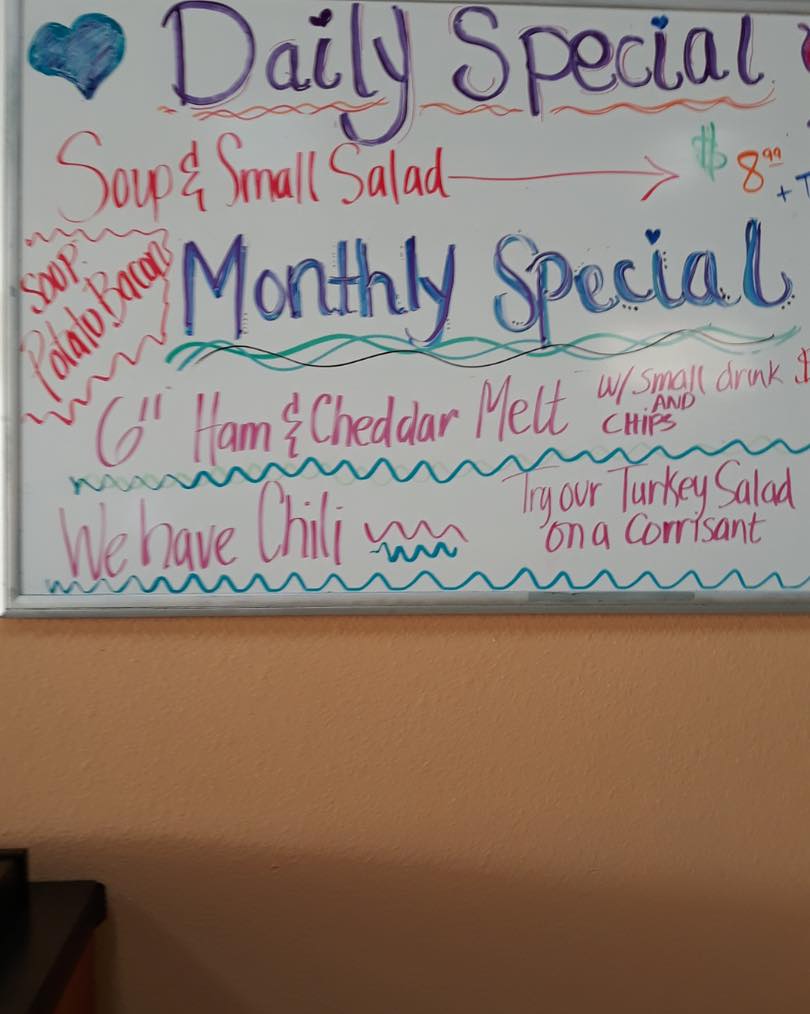 Daily Special
Soup & Small Salad $ 8.99
+ T
Soup
Potato Bacon
Monthly Special
6" Ham & Cheddar Melt w/ small drink $
AND
CHIPS
We have Chili
Try our Turkey Salad
on a Corrisant